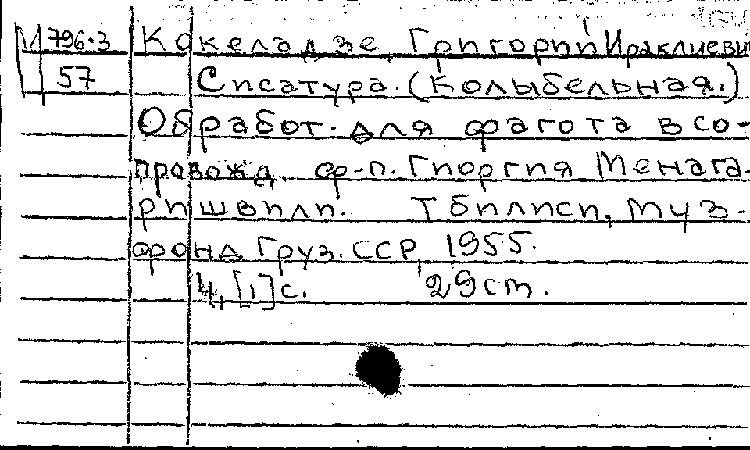 М 796-3 Кокеладзе, Григорий Ираклиеви
57 Сисатура. (Колыбельная.)
Обработ. для фагота в со-
провожд. ф-п. Гиоргия Менага-
ришвили. Тбилиси, Муз-
фонд Груз. ССР, 1955.
4, [1] с. 29 см.